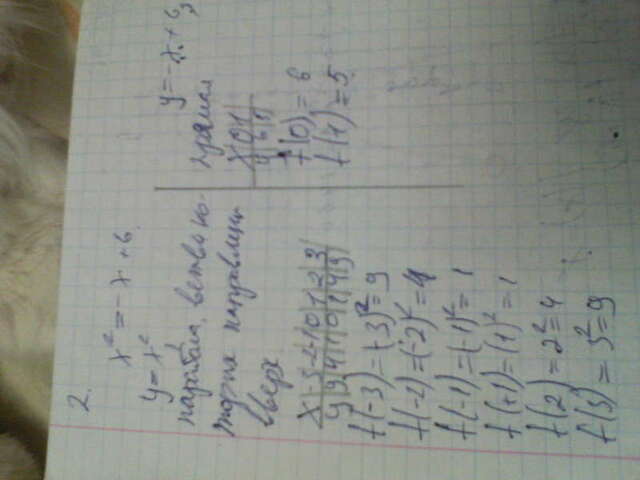 2.
x² = -x + 6
y = x²
парабола, ветви ко-
торой направлены
вверх
x -3 -2 -1 0 1 2 3
y 9 4 1 0 1 4 9
f(-3) = (-3)² = 9
f(-2) = (-2)² = 4
f(-1) = (-1)² = 1
f(+1) = (1)² = 1
f(2) = 2² = 4
f(3) = 3² = 9
y = -x + 6,
прямая
x 0 1
y 6 5
f(0) = 6
f(1) = 5